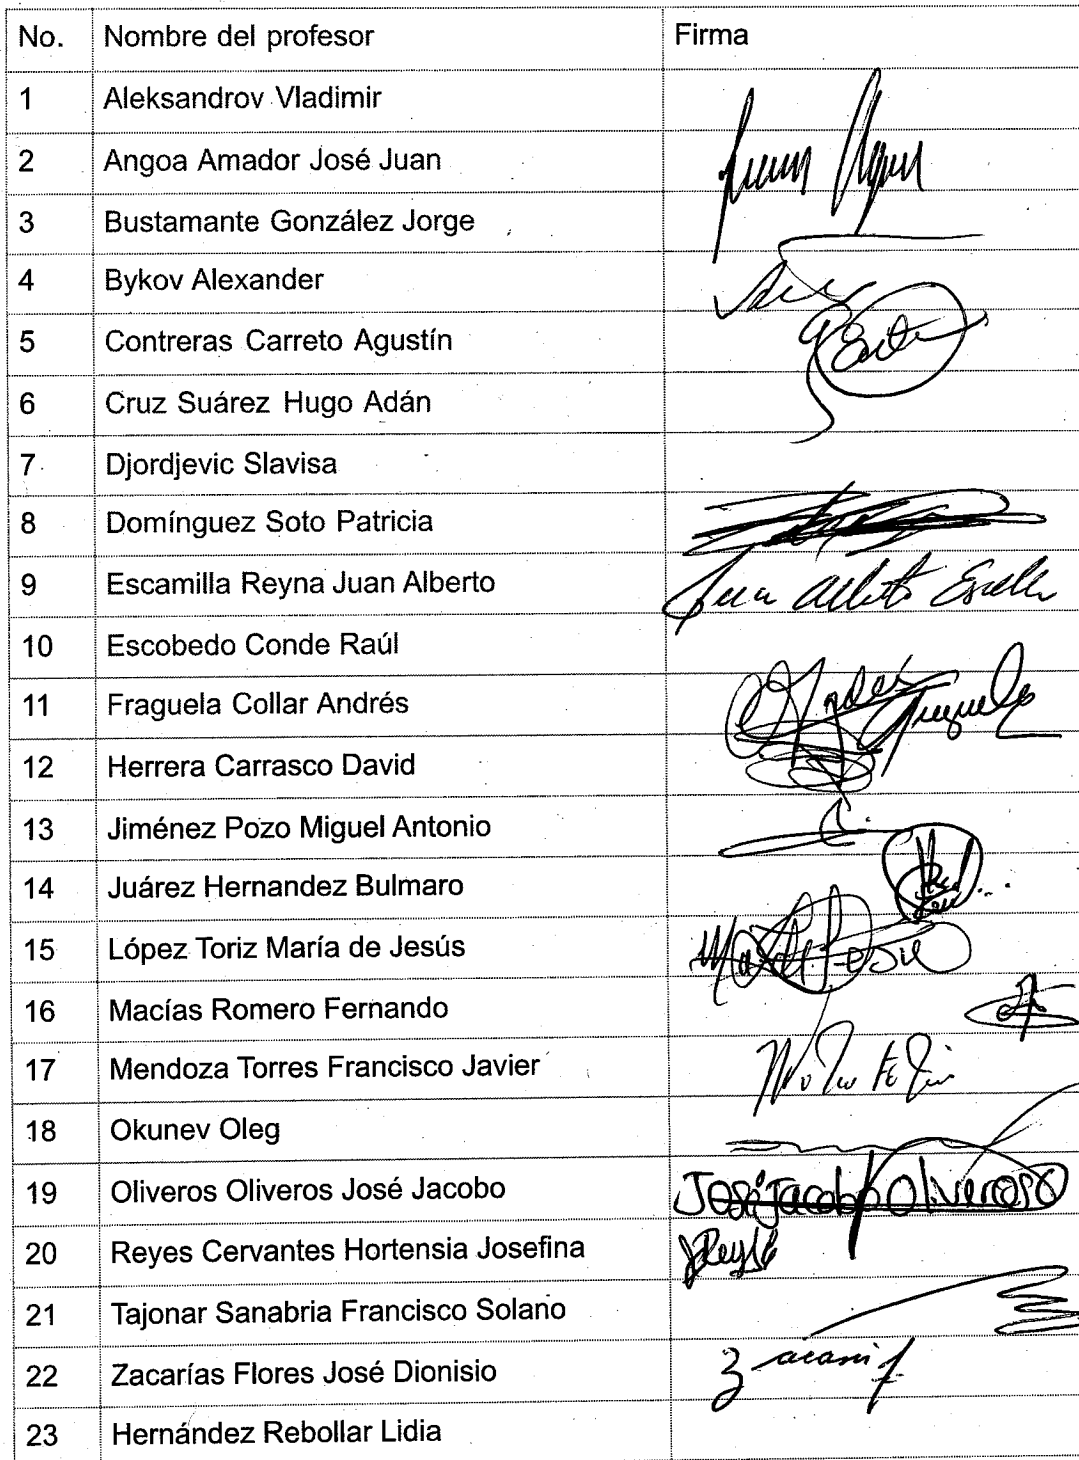 No. Nombre del profesor Firma
1 Aleksandrov Vladimir
2 Angoa Amador José Juan
3 Bustamante González Jorge
4 Bykov Alexander
5 Contreras Carreto Agustín
6 Cruz Suárez Hugo Adán
7 Djordjevic Slavisa
8 Domínguez Soto Patricia
9 Escamilla Reyna Juan Alberto
10 Escobedo Conde Raúl
11 Fraguela Collar Andrés
12 Herrera Carrasco David
13 Jiménez Pozo Miguel Antonio
14 Juárez Hernandez Bulmaro
15 López Toriz María de Jesús
16 Macías Romero Fernando
17 Mendoza Torres Francisco Javier
18 Okunev Oleg
19 Oliveros Oliveros José Jacobo José Jacobo Oliveros O
20 Reyes Cervantes Hortensia Josefina
21 Tajonar Sanabria Francisco Solano
22 Zacarías Flores José Dionisio
23 Hernández Rebollar Lidia